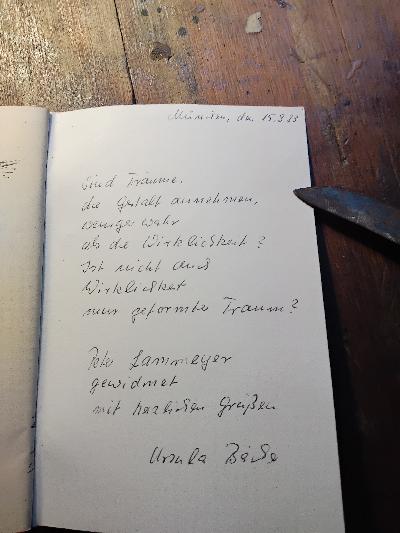 München, den 15.9.83
Sind Träume,
die Gestalt annehmen,
weniger wahr
als die Wirklichkeit?
Ist nicht auch
Wirklichkeit
nur geformter Traum?
Peter Lammeyer
gewidmet
mit herzlichen Grüßen
Ursula